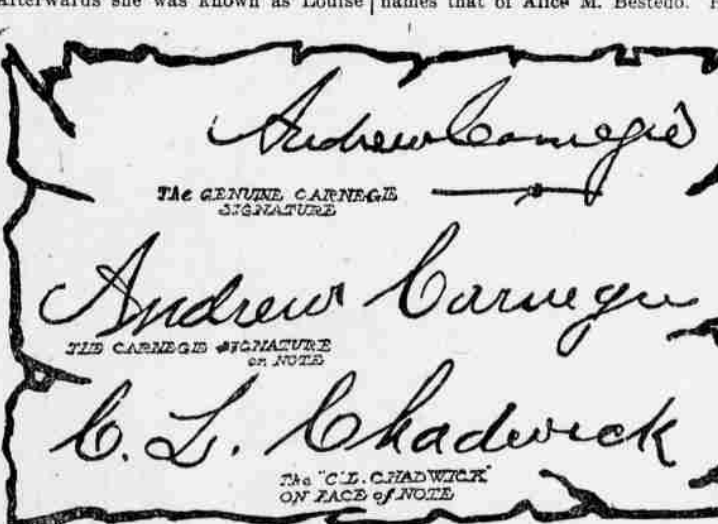 Afterwards she was known as Louise
names that of Alice M. Bestedo.
Andrew Carnegie
The GENUINE CARNEGIE
SIGNATURE
Andrew Carnegie
THE CARNEGIE SIGNATURE
on NOTE
C. L. Chadwick
The "C.L. CHADWICK"
ON FACE of NOTE